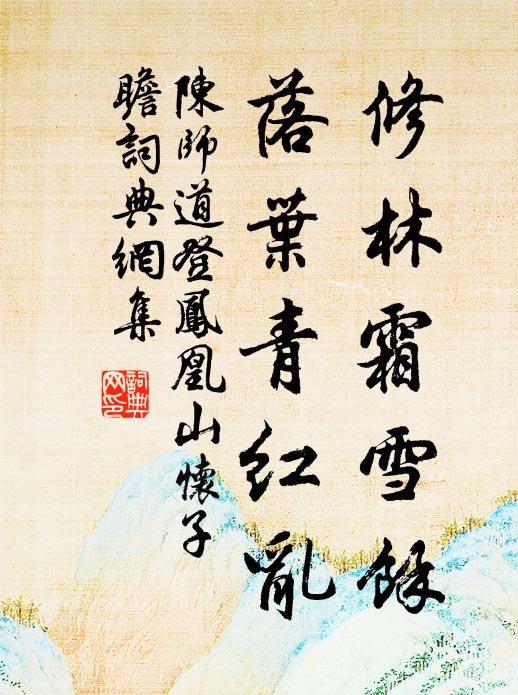 修林霜雪餘
落葉青紅亂
陳師道登鳳凰山懷子
瞻詞典網集
詞典
网印